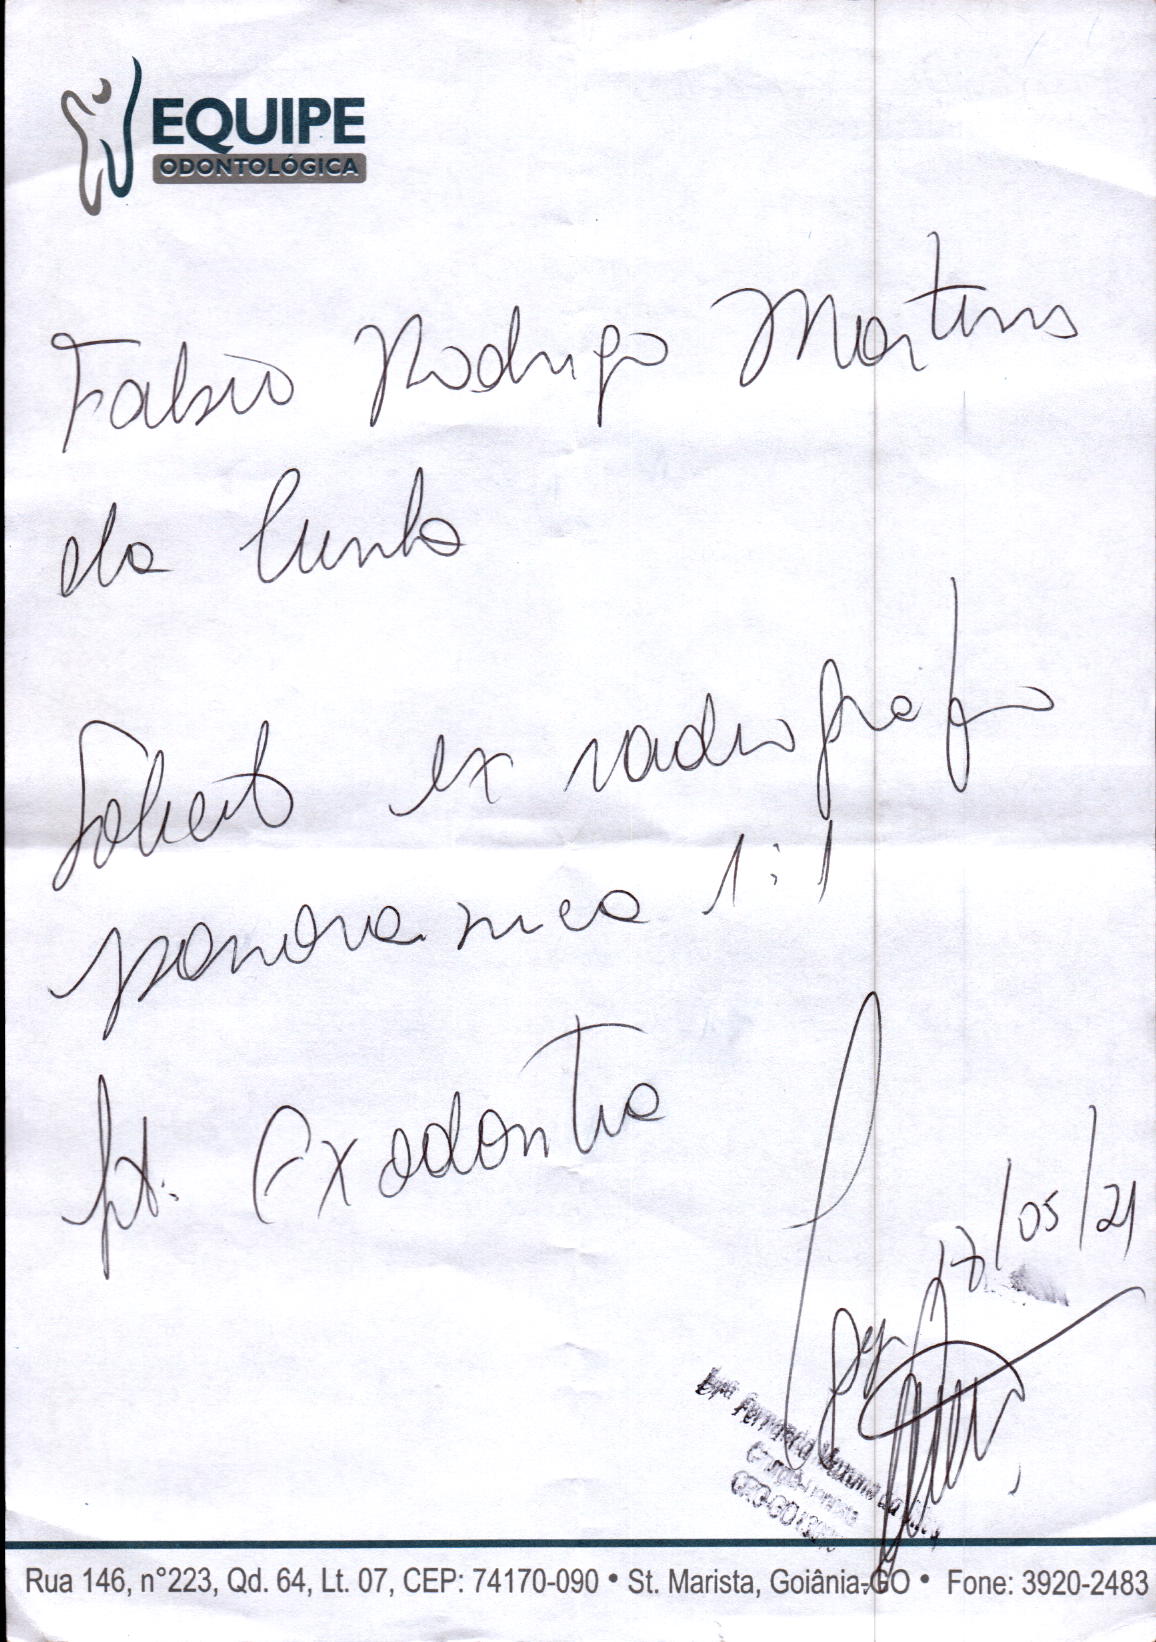 EQUIPE
ODONTOLÓGICA
Fabio Rodrigo Martins
da Cunha
Solicito ex radiografia
panoramica 1:1
pt. Exodontia
17/05/21
Drª Fernanda
CRO-GO
Rua 146, n°223, Qd. 64, Lt. 07, CEP: 74170-090 • St. Marista, Goiânia-GO • Fone: 3920-2483